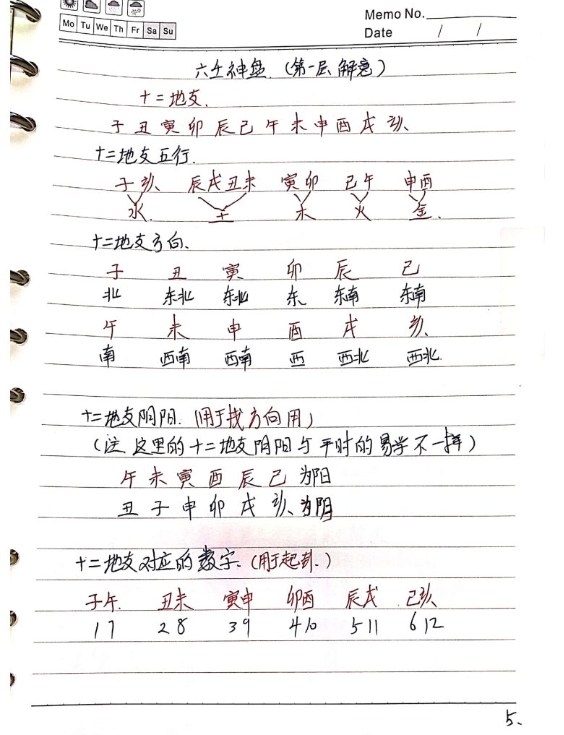 Memo No.
Mo Tu We Th Fr Sa Su
Date / /
六壬神盘 (第一层解意)
十二地支.
子丑寅卯辰己午未申酉戌亥、
十二地支五行.
子亥、 辰戌丑未 寅卯 己午 申酉
水. 土 木 火 金.
十二地支方向.
子 丑 寅 卯 辰 己
北 东北 东北 东 东南 东南
午 未 申 酉 戌 亥、
南 西南 西南 西 西北 西北.
十二地支阴阳. (用于找方向用)
(注 这里的十二地支阴阳与平时的易学不一样)
午未寅酉辰己为阳
丑子申卯戌亥、为阴
十二地支对应的数字. (用于起卦.)
子午. 丑未 寅申 卯酉 辰戌 己亥、
1 7 2 8 3 9 4 10 5 11 6 12
5、